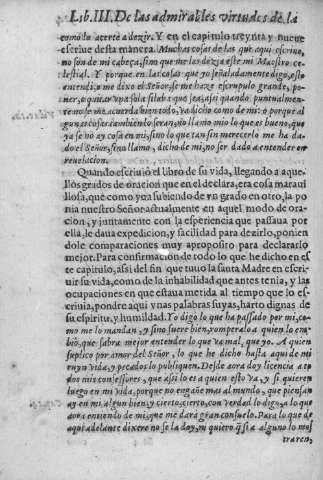 Lib. III. De las admirables virtudes de la
como la acerte a dezir. Y en el capitulo treynta y nueue
escriue desta manera. Muchas cosas de las que aqui escriuo,
no son de mi cabeça, sino que me las dezia este mi Maestro ce-
lestial. Y porque en las cosas que yo señaladamente digo, esto
entendi, o me dixo el Señor, se me haze escrupulo grande, po-
ner, o quitar vna sola silaba que sea, assi quando puntualmen-
te no se me acuerda bien todo, va dicho como de mi: o porque al
gunas cosas tambien lo seran, no llamo mio lo que es bueno, que
ya se no ay cosa en mi, sino lo que tan sin merecerlo me ha da-
do el Señor, sino llamo, dicho de mi, no ser dado a entender en
reuelacion.
Quando escriuio el libro de su vida, llegando a aque-
llos grados de oracion que en el declara, era cosa maraui
llosa, que como yua subiendo de vn grado en otro, la po
nia nuestro Señor actualmente en aquel modo de ora-
cion, y juntamente con la esperiencia que passaua por
ella, le daua expedicion, y facilidad para dezirlo, ponien
dole comparaciones muy a proposito para declararlo
mejor. Para confirmacion de todo lo que he dicho en es
te capitulo, assi del fin que tuuo la santa Madre en escri-
uir su vida, como de la inhabilidad que antes tenia, y las
ocupaciones en que estaua metida al tiempo que lo es-
criuia, pondre aqui vnas palabras suyas, harto dignas de
su espiritu, y humildad. Yo digo lo que ha passado por mi, co-
mo me lo mandan, y sino fuere bien, romperalo a quien lo em-
bio, que sabra mejor entender lo que va mal, que yo. A quien
suplico por amor del Señor, lo que he dicho hasta aqui de mi
ruyn vida, y pecados lo publiquen. Desde aora doy licencia a to
dos mis confessores, que assi lo es a quien esto va, y si quieren
luego en mi vida, porque no engañe mas al mundo, que piensan
ay en mi algun bien, y cierto, cierto, con verdad lo digo, a lo que
aora entiendo de mi, que me dara gran consuelo. Para lo que de
aqui adelante dixere no se la doy, ni quiero q̃ si a alguno lo mos
traren,